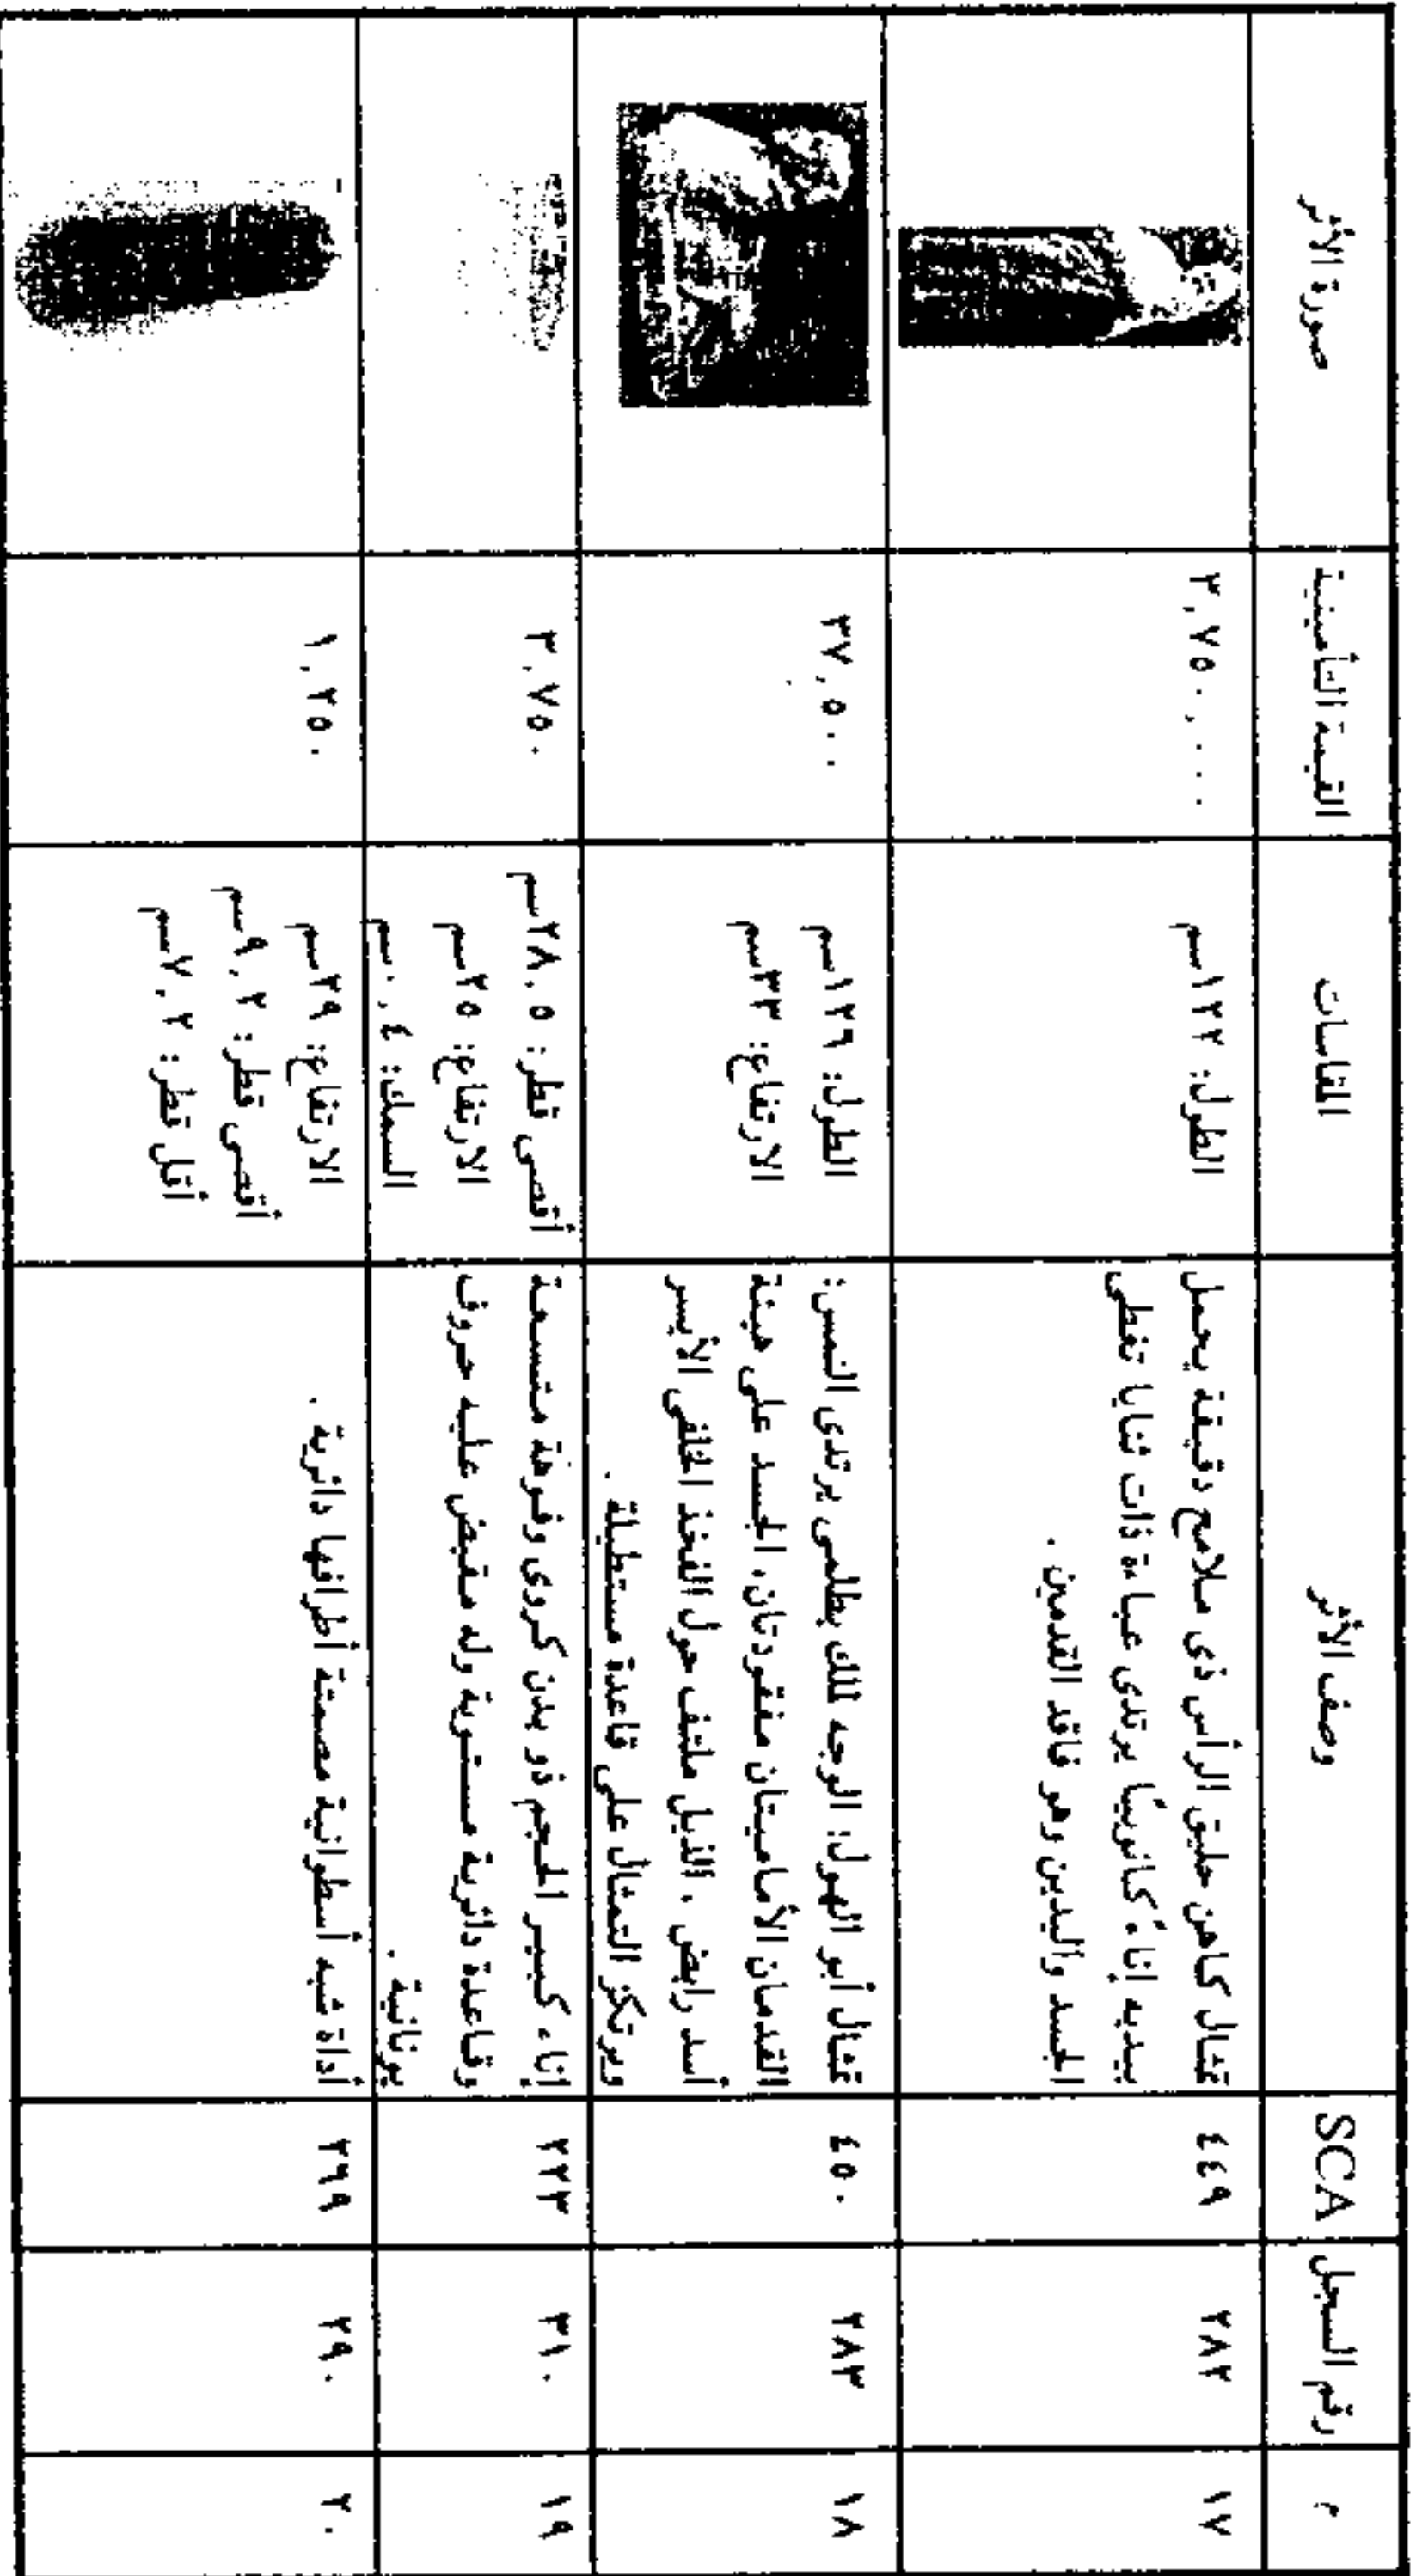 م
رقم السجل
SCA
وصف الأثر
المقاسات
القيمة التأمينية
صورة الأثر
١٧
٢٨٢
٤٤٩
تمثال كاهن حليق الرأس ذى ملامح دقيقة يحمل
بيديه إناءً كانوبيًا يرتدى عباءة ذات ثنايا تغطى
الجسد واليدين وهو فاقد القدمين .
الطول: ١٢٢سم
٣,٧٥٠,٠٠٠
١٨
٢٨٣
٤٥٠
تمثال أبو الهول: الوجه لملك بطلمى يرتدى النمس:
القدمان الأماميتان مفقودتان، الجسد على هيئة
أسد رابض ، الذيل ملتف حول الفخذ الخلفى الأيسر
ويرتكز التمثال على قاعدة مستطيلة .
الطول: ١٢٦سم
الارتفاع: ٣٣سم
٣٧,٥٠٠
١٩
٣١٠
٢٢٣
إناء كبير الحجم ذو بدن كروى وفوهة متسعة
وقاعدة دائرية مستوية وله مقبض عليه حروف
يونانية .
أقصى قطر: ٢٨,٥سم
الارتفاع: ٢٥سم
السمك: ٠,٤سم
٣,٧٥٠
٢٠
٢٩٠
٢٦٩
أداة شبه أسطوانية مصمتة أطرافها دائرية .
الارتفاع: ٢٩سم
أقصى قطر: ٩,٢سم
أقل قطر: ٧,٢سم
١,٢٥٠